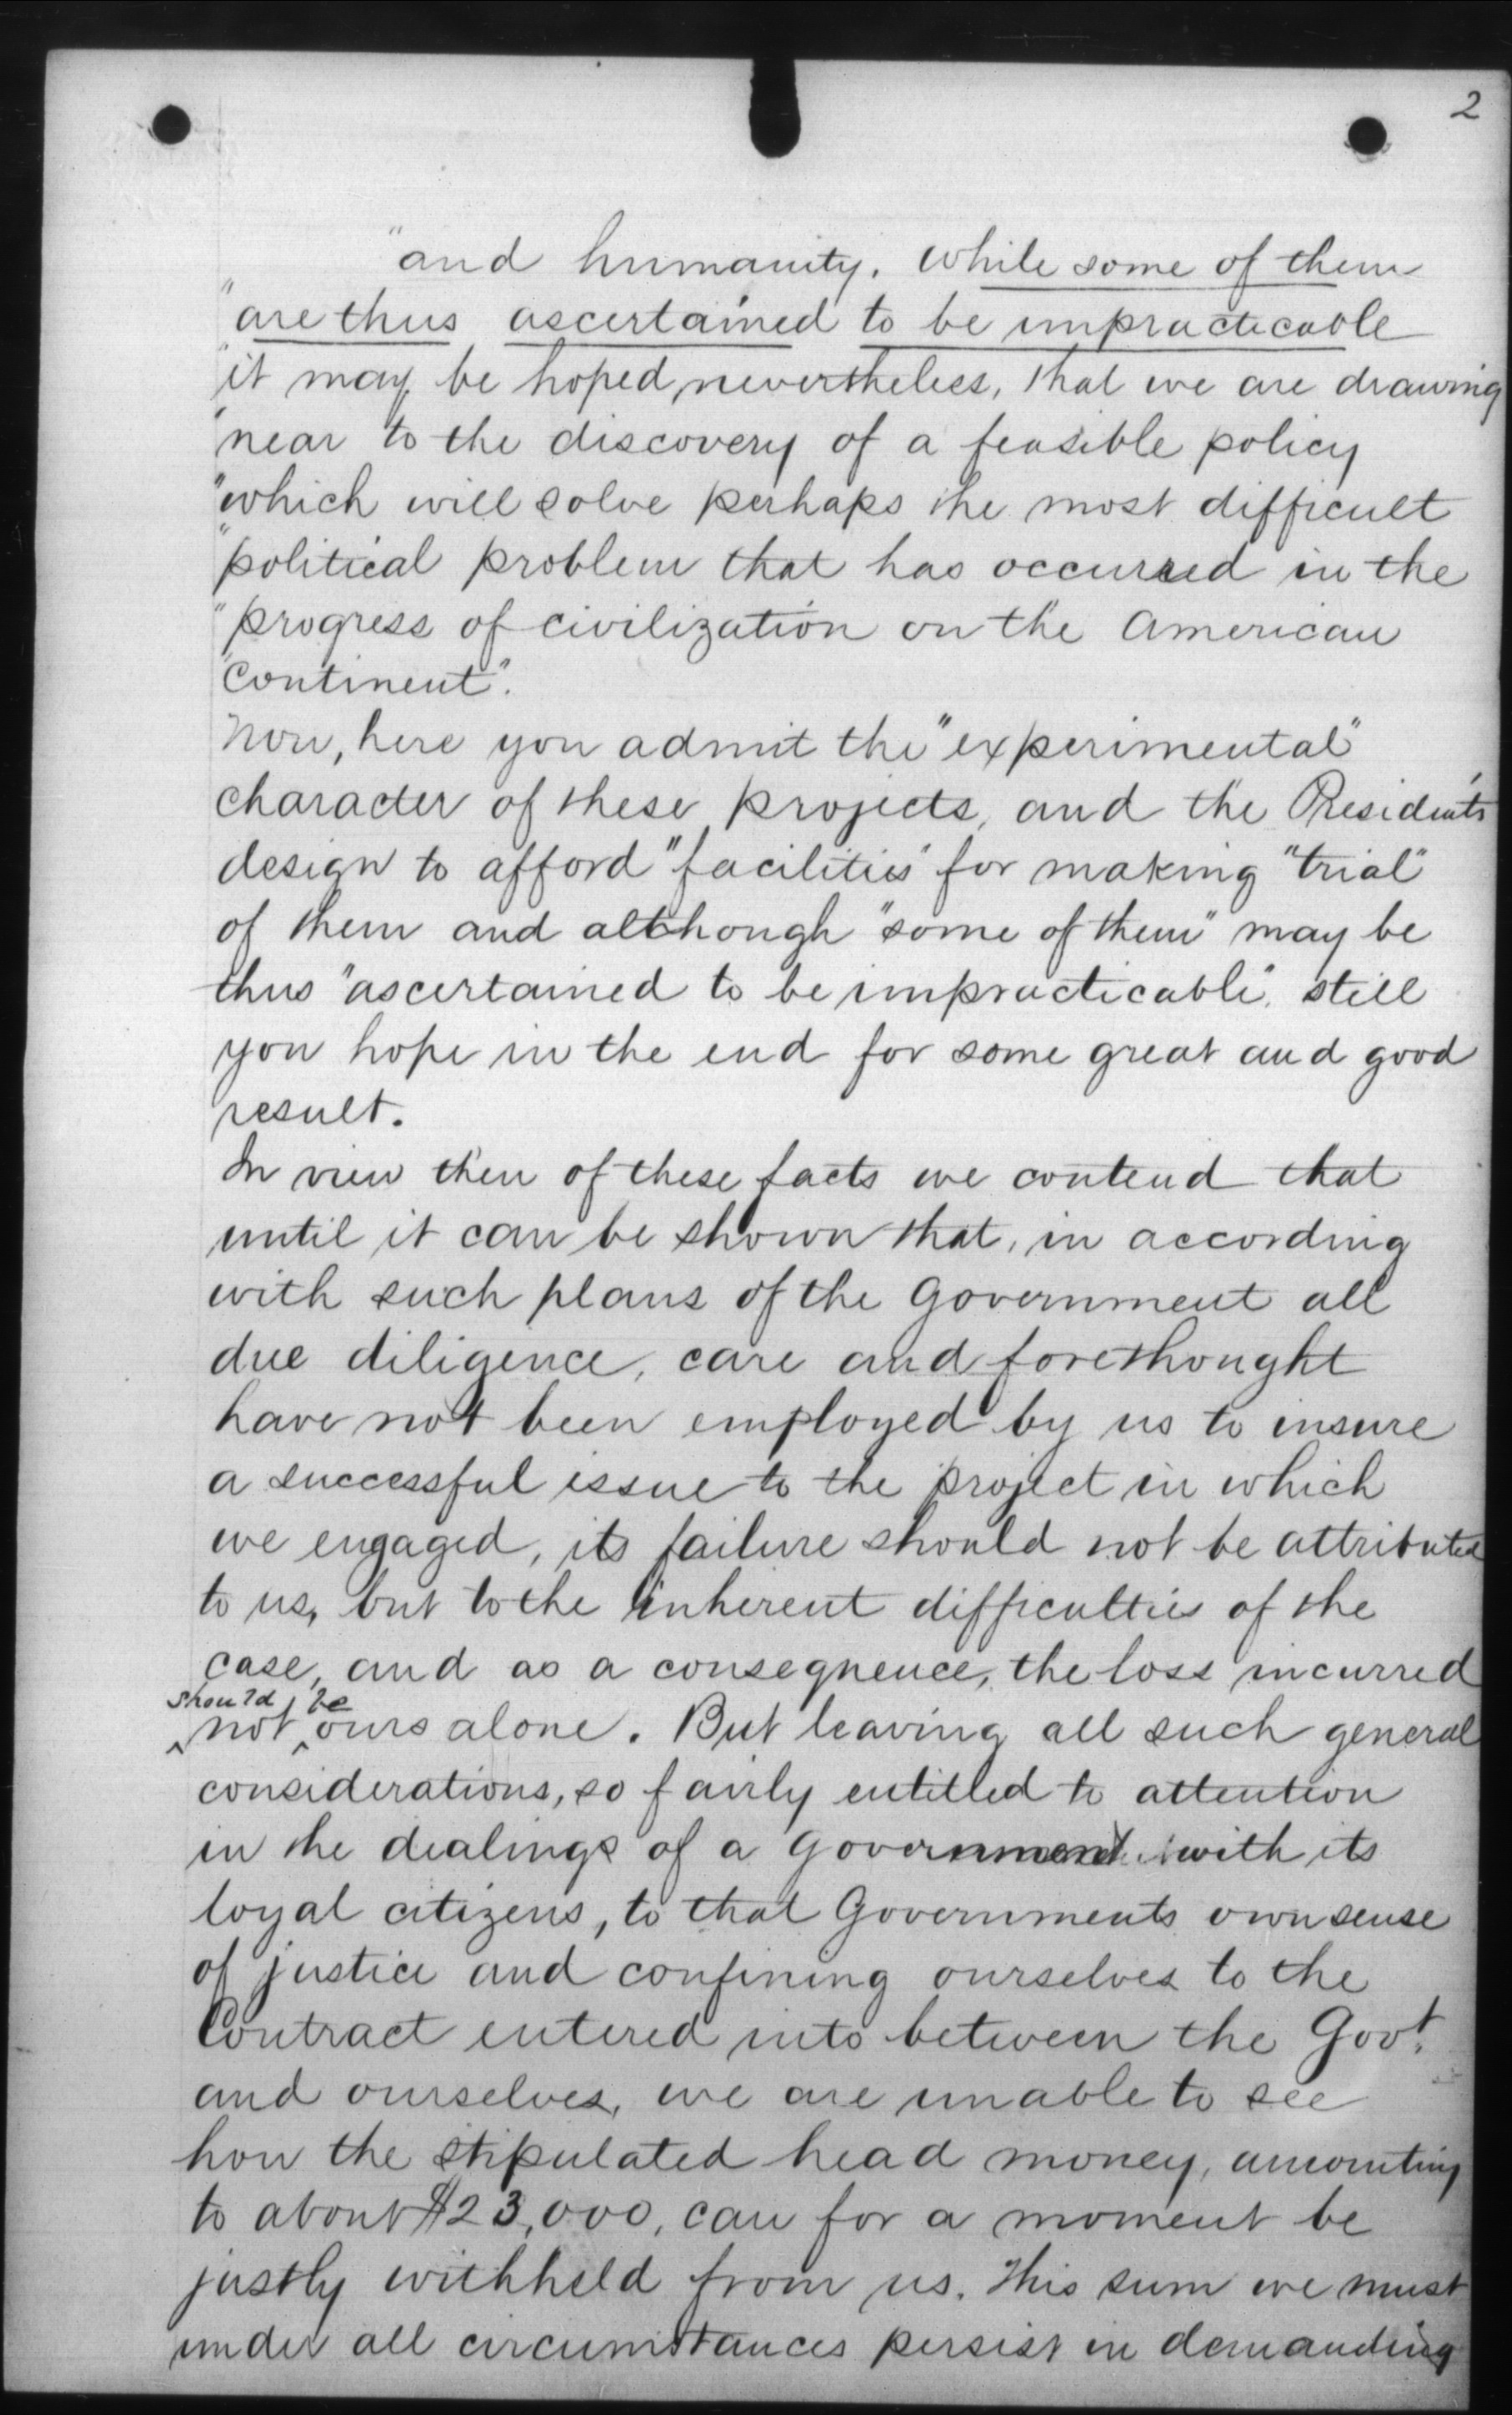 2
"and humanity. While some of them
"are thus ascertained to be impracticable
"it may be hoped, nevertheless, that we are drawing
"near to the discovery of a feasible policy
"which will solve perhaps the most difficult
"political problem that has occurred in the
"progress of civilization on the American
"continent".
Now, here you admit the "experimental"
character of these projects, and the President's
design to afford "facilities" for making "trial"
of them and although "some of them" may be
thus "ascertained to be impracticable", still
you hope in the end for some great and good
result.
In view then of these facts we contend that
until it can be shown that, in according
with such plans of the Government all
due diligence, care and forethought
have not been employed by us to insure
a successful issue to the project in which
we engaged, its failure should not be attributed
to us, but to the inherent difficulties of the
case, and as a consequence, the loss incurred
should be
^not ^ours alone. But leaving all such general
considerations, so fairly entitled to attention
in the dealings of a Government with its
loyal citizens, to that Governments own sense
of justice and confining ourselves to the
Contract entered into between the Govt.
and ourselves, we are unable to see
how the stipulated head money, amounting
to about $23,000, can for a moment be
justly withheld from us. This sum we must
under all circumstances persist in demanding